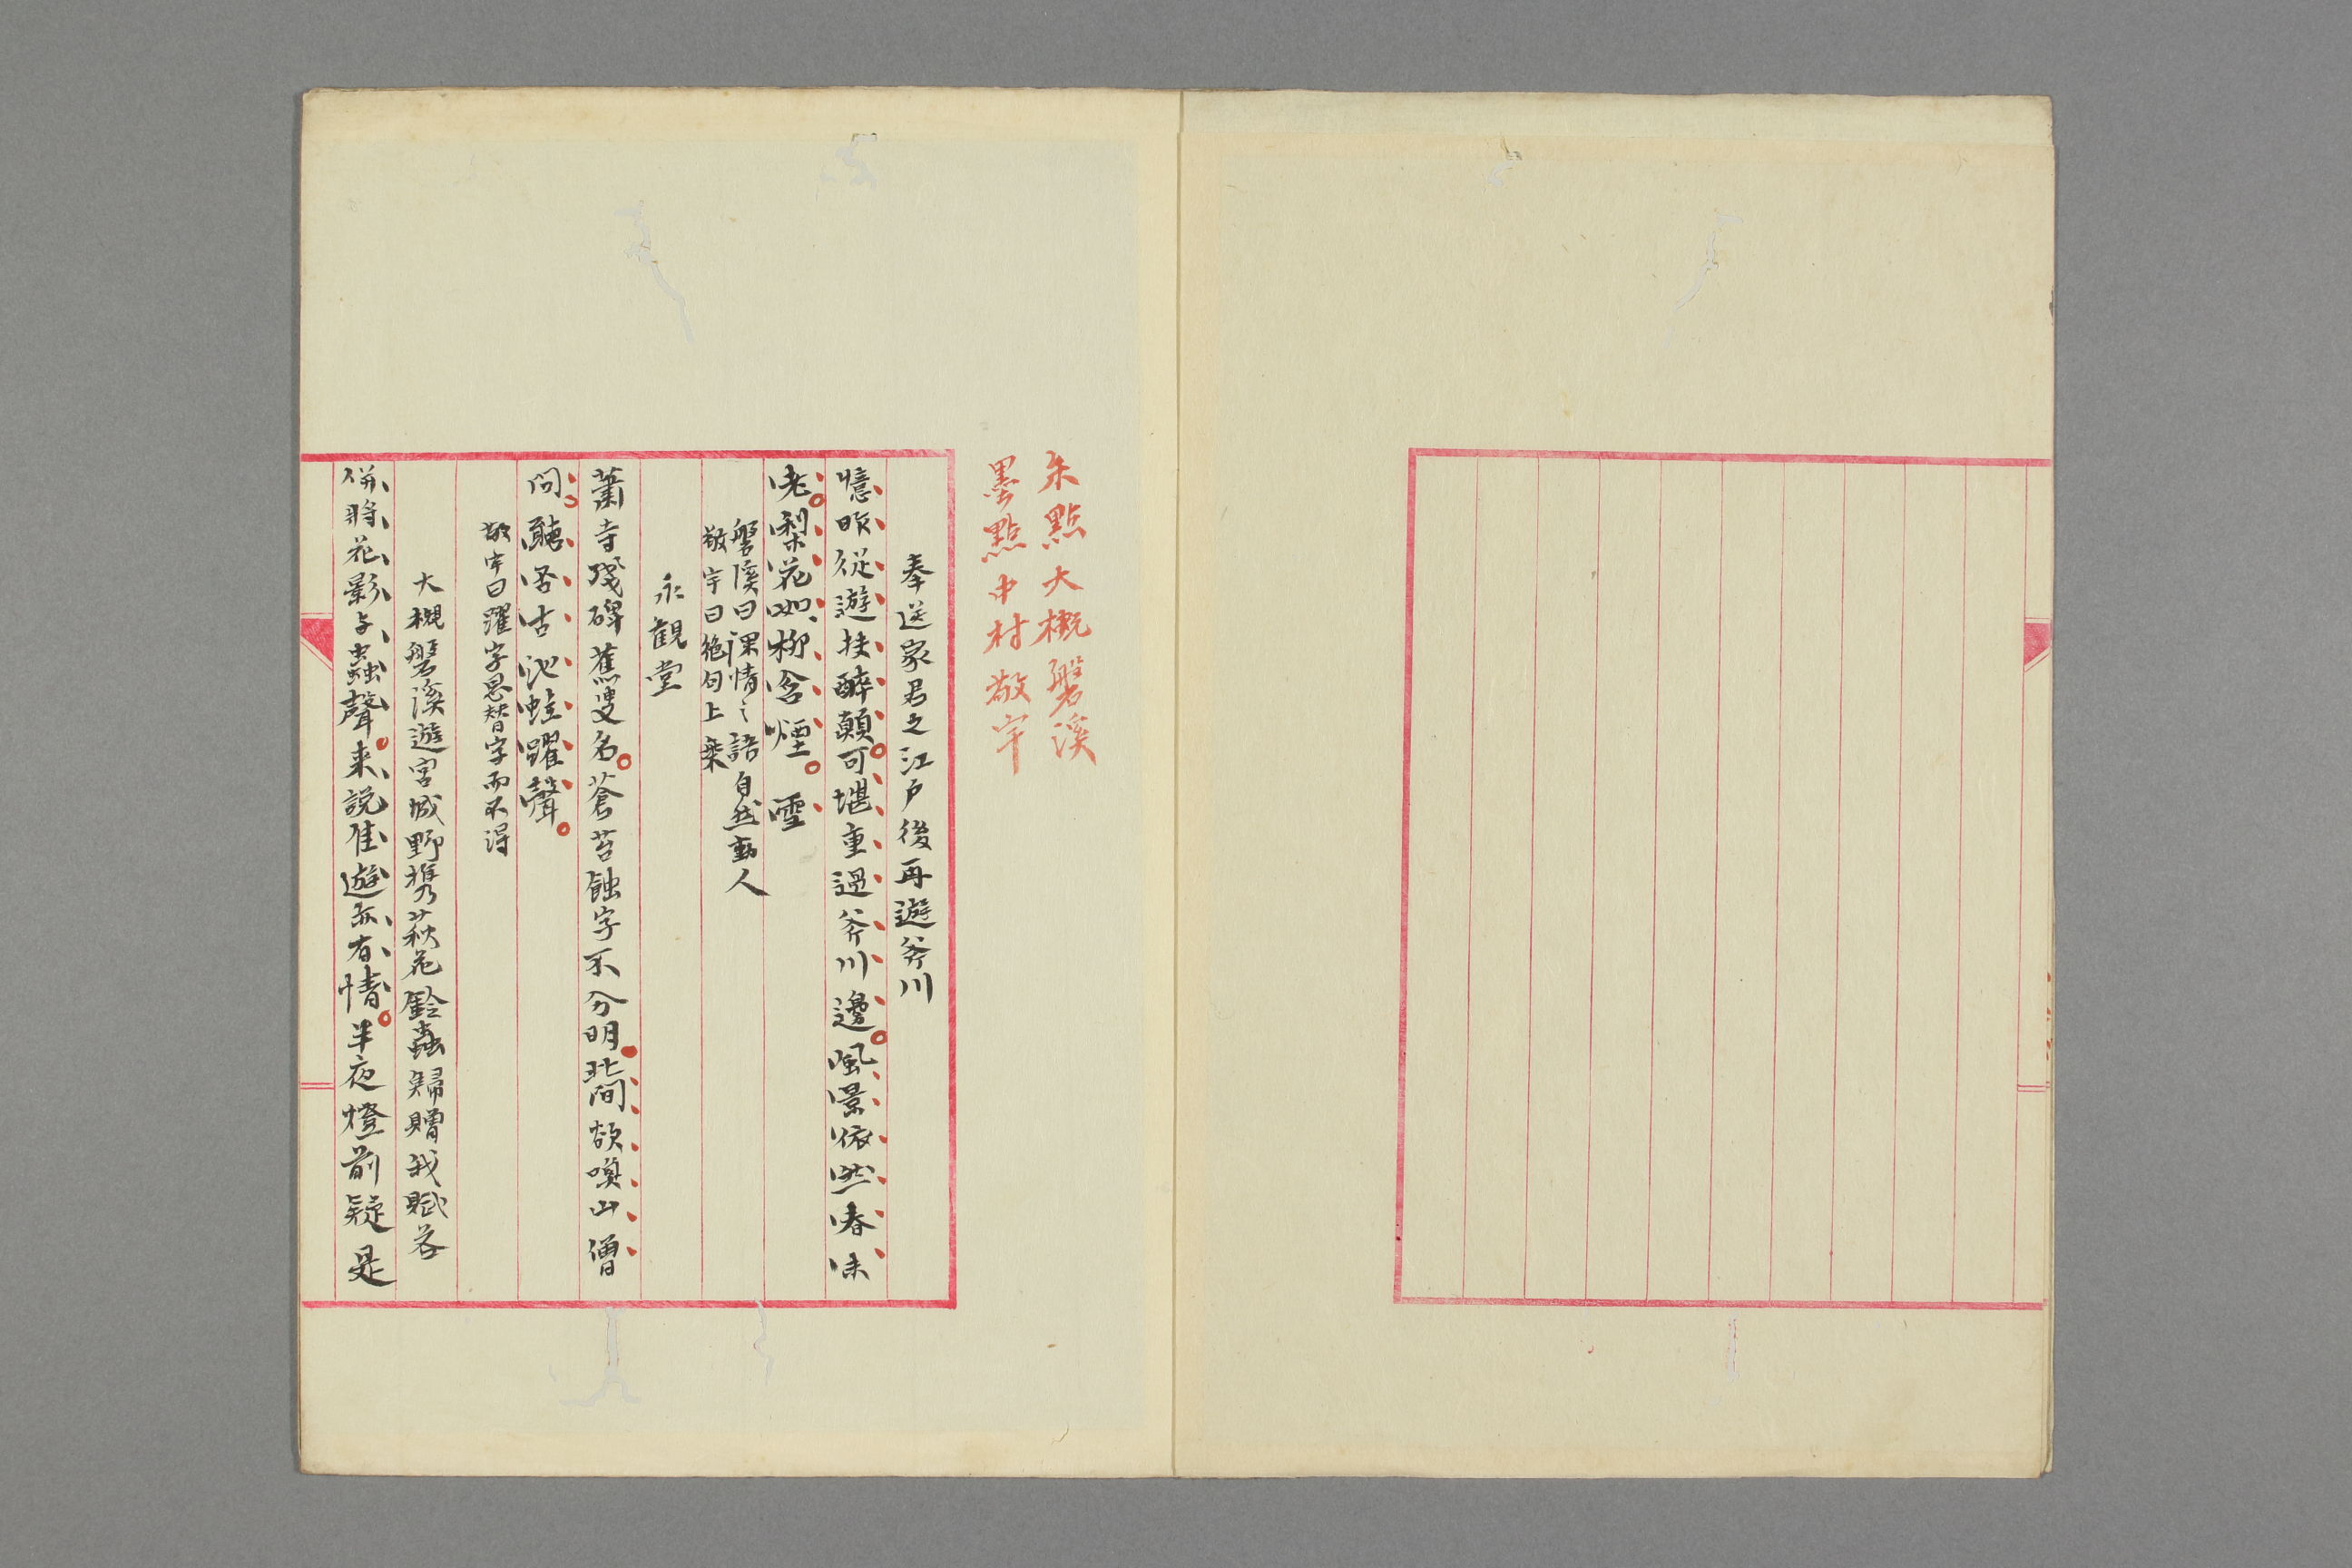 朱點大槻磐溪
墨點中村敬宇
奉送家君之江戸後再遊斧川
憶昨從遊扶醉顛可堪重過斧川邊風景依然春未
老梨花如柳含煙 雪
磐溪曰深情之語自然動人
敬宇曰絶句上乗
永觀堂
蕭寺殘碑蕉叟名蒼苔蝕字不分明此間欲喚山僧
問聽否古池蛙躍聲
敬宇曰躍字思替字而不得
大槻磐溪遊宮城野携萩花鈴蟲歸贈我賦答
併將花影与蟲聲来説佳遊亦有情半夜燈前疑是